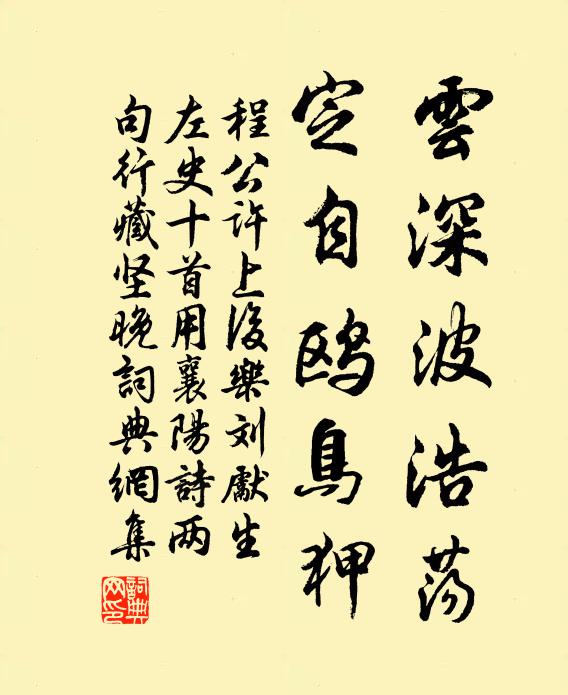 雲深波浩荡
定自鸥鳥狎
程公许上後樂刘獻生
左史十首用襄陽詩两
句行藏坚晚詞典網集
詞典网印